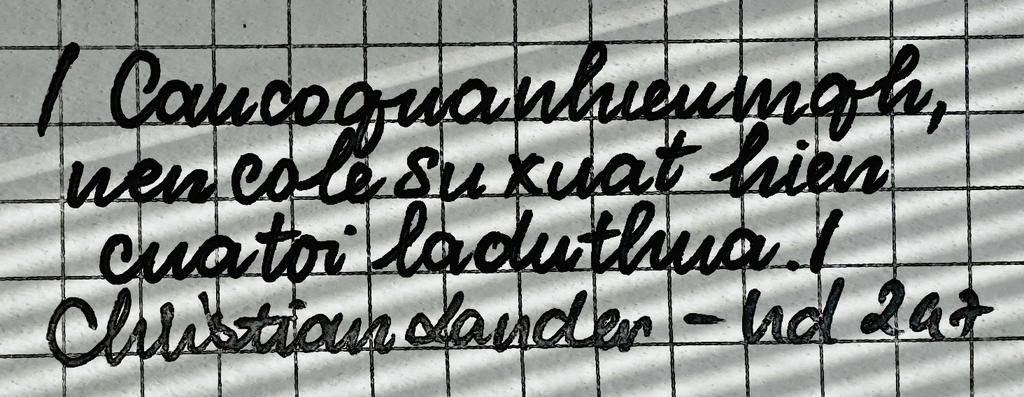 / Caucoquanhieumqh,
nen cole su xuat hien
cuatoi laduthua./
Christian Lander - hd 297